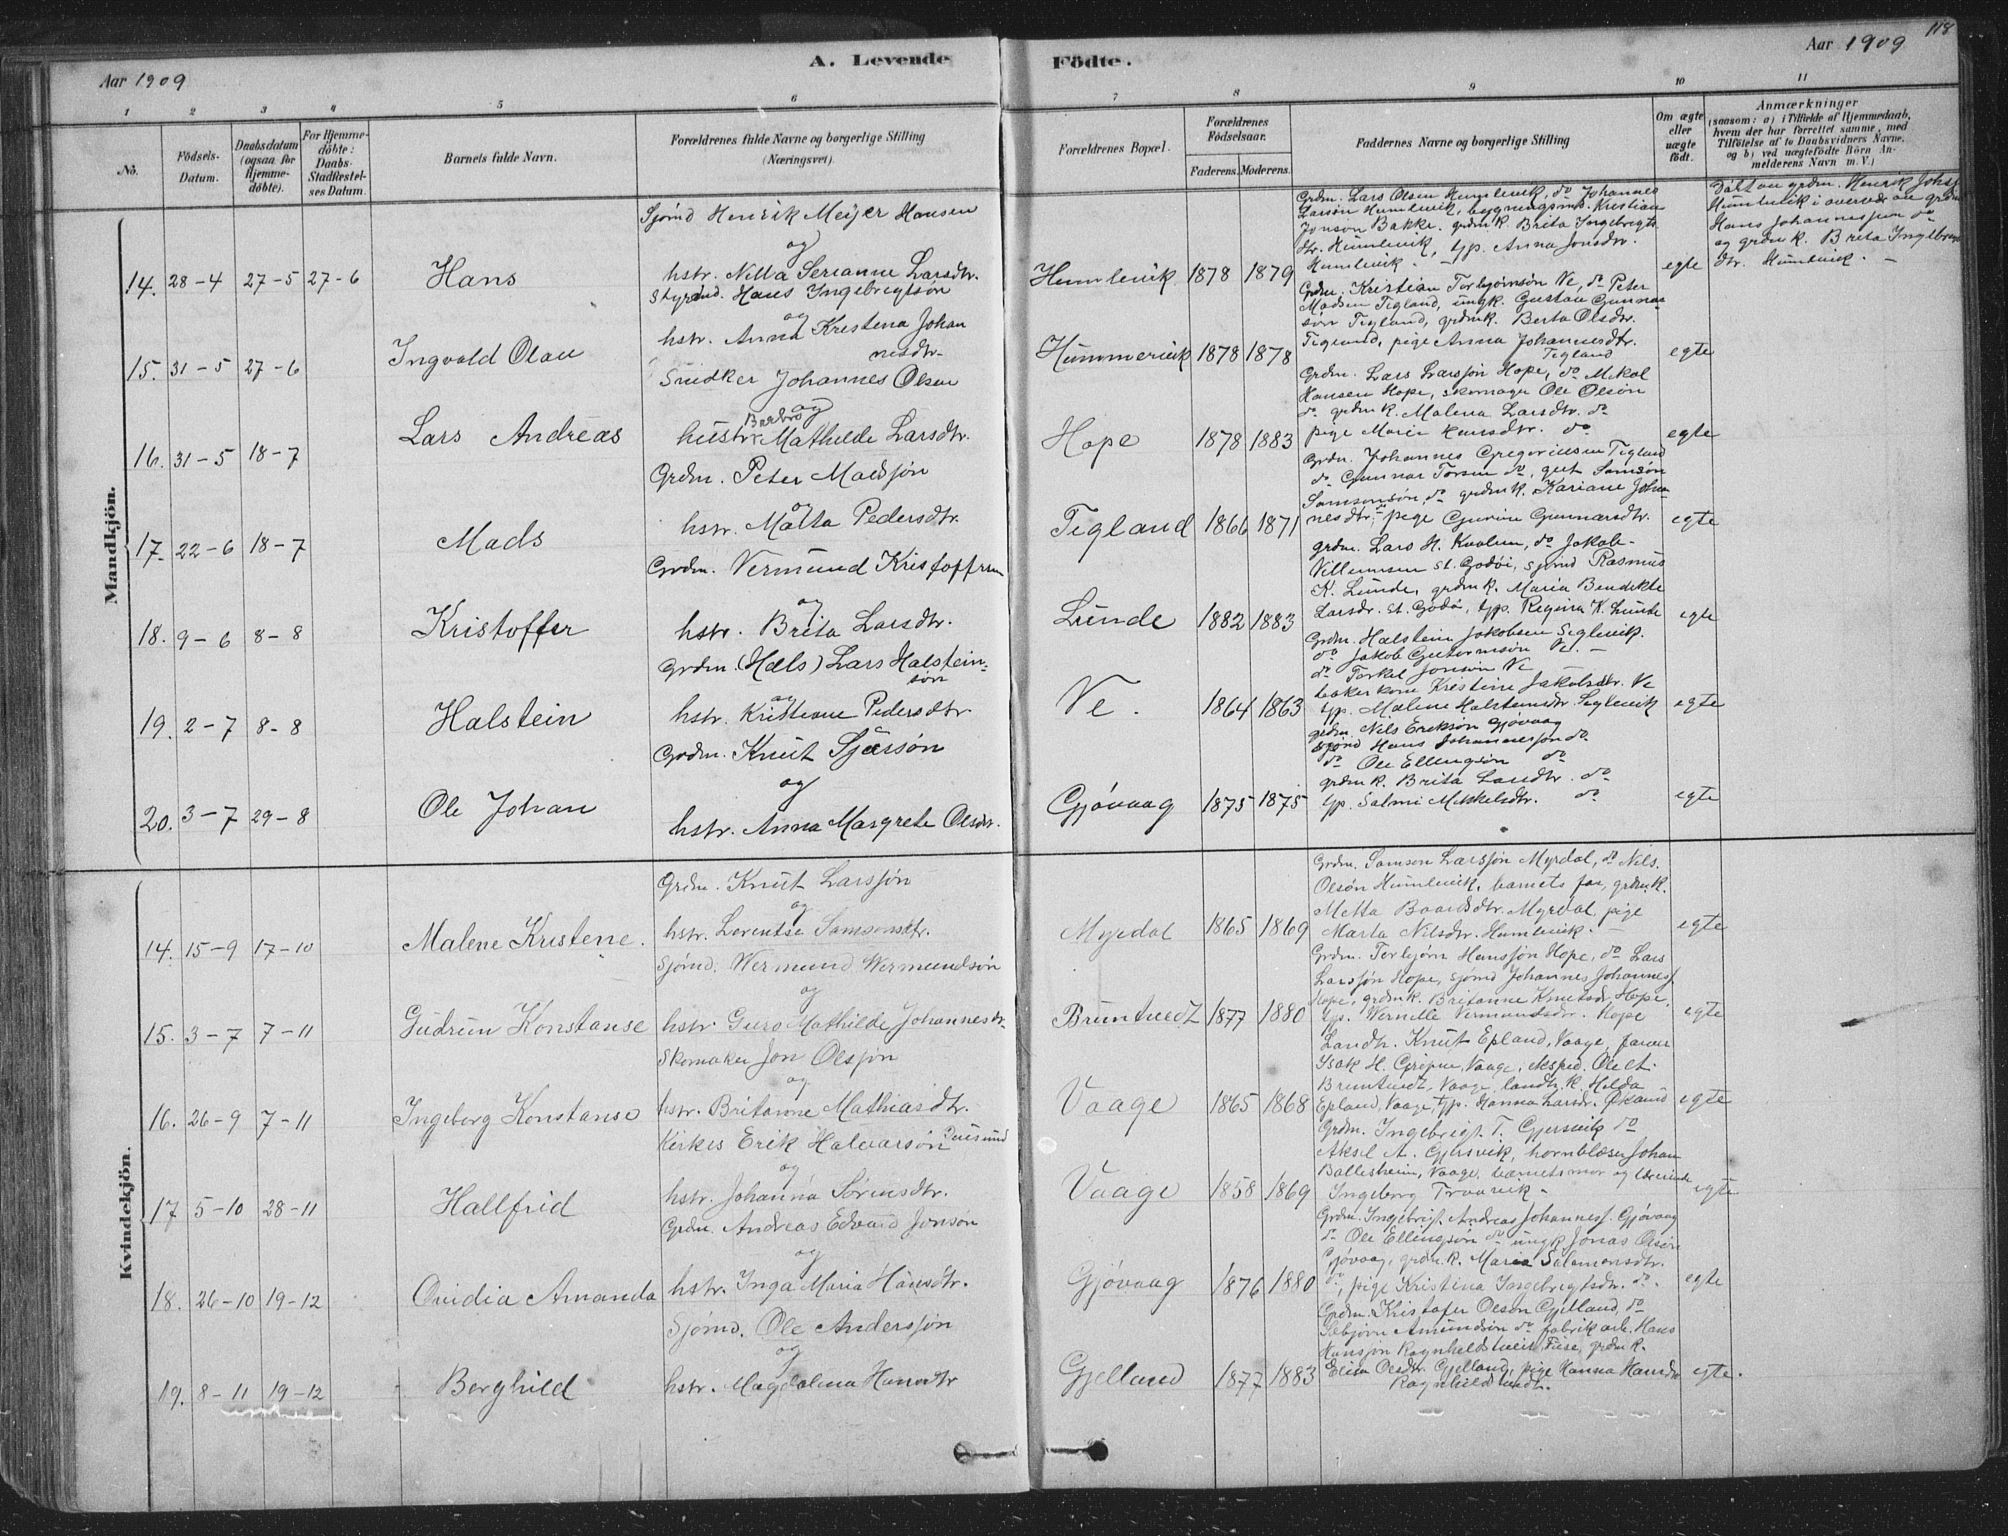 118
Aar 1909
A. Levende
Födte.
Aar 1909
1 2 3 4 5 6 7 8 9 10 11
No.
Födsels-Datum.
Daabsdatum (ogsaa for Hjemmedöbte).
For Hjemmedöbte: Daabs-Stadfestelses Datum.
Barnets fulde Navn.
Forældrenes fulde Navne og borgerlige Stilling (Næringsvei).
Forældrenes Bopæl.
Forældrenes Födselsaar.
Faderens. Moderens.
Faddernes Navne og borgerlige Stilling
Om ægte eller uægte födt.
Anmærkninger
(saasom: a) i Tilfælde af Hjemmedaab, hvem der har forrettet samme, med Tilföielse af to Daabsvidners Navne, og b) ved uægtefödte Börn Anmelderens Navn m. V.)
Mandkjön.
14. 28-4 27-5 27-6 Hans
Sjömd Henrik Meijer Hansen
og
hstr. Nilla Serianne Larsdtr.
Humlevik 1878 1879
Grdm. Lars Olsen Humlevik, do Johannes
Larsön Humlevik, bygningsmd. Kristian
Jonson Bakke, grdmk. Brita Ingebrigts
dtr. Humlevik, tjp. Anna Jonsdtr.
Humlevik.
egte
Döbt av grdm. Henrik Johs
Humlevik i overvær av grdm
Hans Johannessen do
og grdmk. Brita Ingebrigts
dtr. Humlevik. -
15. 31-5 27-6 Ingvald Olau
Styrmd. Hans Ingebrigtsön
og
hstr. Anna Kristena Johan
nesdtr.
Hummervik 1878 1878
Grdm. Kristian Torbjörnsön Ve, do Peter
Madsen Tigland, ungk. Gustav Gunnar
sön Tigland, grdmk. Berta Olsdtr.
Tigland, pige Anna Johannesdtr.
Tigland
egte
16. 31-5 18-7 Lars Andreas
Snidker Johannes Olsen
og
hustr. Barbro Mathilde Larsdtr.
Hope 1878 1883
Grdm. Lars Larssön Hope, do Mikal
Hansen Hope, skomager Ole Olsön
do grdmk. Malena Larsdtr. do
pige Marie Hansdtr. do
egte
17. 22-6 18-7 Mads
Grdm. Peter Madssön
og
hstr. Matta Pedersdtr.
Tigland 1866 1871
Grdm. Johannes Gregoriussen Tigland
do Gunnar Torsen do, gut Samson
Samsonsön do grdmk. Kariane Johan
nesdtr. do pige Gurine Gunnarsdtr.
egte
18. 9-6 8-8 Kristoffer
Grdm. Vermund Kristoffersen
og
hstr. Brita Larsdtr.
Lunde 1882 1883
grdm. Lars H. Kvalen, do Jakob
Villumsen St. Godöi, sjömd Rasmus
K. Lunde, grdmk. Maria Bendikte
Larsdr. St. Godö, tjp. Regina K. Lunde
egte
19. 2-7 8-8 Halstein
Grdm. (Hæls) Lars Halstein-
sön
og
hstr. Kristiane Pedersdtr
Ve. 1864 1863
Grdm. Halstein Jakobsen Seglevik.
do Jakob Guttormsön Ve. -
do Torkel Jonsön Ve
bakerkone Kristine Jakobsdtr. Ve
tjp. Malene Halsteinsdtr. Seglevik
egte
20. 3-7 29-8 Ole Johan
Grdm. Knut Sjursön
og
hstr. Anna Margrete Olsdtr.
Gjövaag 1875 1875
grdm. Nils Eriksön Gjövaag
sjömd Hans Johannessön do
do Ole Ellingsön do
grdmk. Brita Larsdtr. do
tjp. Salmi Mikkelsdtr. do
egte
Kvindekjön.
14. 15-9 17-10 Malene Kristene.
Grdm. Knut Larssön
og
hstr. Lorentse Samsonsdtr.
Myrdal 1865 1869
Grdm. Samson Larssön Myrdal, do Nils.
Olsön Humlevik, barnets far, grdmk.
Metta Baardsdtr. Myrdal, pige
Marta Nilsdtr. Humlevik.
egte
15. 3-7 7-11 Gudrun Konstanse
Sjömd. Wermund Wermundsön
og
hstr. Guro Mathilde Johannesdtr.
Bruntvedt 1877 1880
Grdm. Torbjörn Hanssön Hope, do Lars
Larssön Hope, sjömd Johannes Johanness
Hope, grdmk. Britanne Knutsdr. Hope,
tjp. Wernelle Vermundsdr. Hope
egte
16. 26-9 7-11 Ingeborg Konstanse
Skomaker Jon Olssön
og
hstr. Britanne Mathiasdtr.
Vaage 1865 1868
Landh. Knut Epland, Vaage, farver
Isak H. Gripne, Vaage, eksped. Ole
Bruntveidt, Vaage, landh.k. Hilda
Epland, Vaage, tjp. Hanna Larsdr. Öksund
egte
17. 5-10 28-11 Hallfrid
Kirkes. Erik Halvarsön
og
hstr. Johanna Sörensdtr.
Vaage 1858 1869
Grdm. Ingebrigt T. Gjersvik do
Aksel A. Gjersvik, hornblæser Johan
Ballesheim, Vaage, barnets mor og lærerinde
Ingeborg Tvaavik -
egte
18. 26-10 19-12 Ovidia Amanda
Grdm. Andreas Edvard Jonsön
og
hstr. Inga Maria Hansdtr.
Gjövaag 1876 1880
Grdm. Ingebrigt Andreas Johanness. Gjövaag
do Ole Ellingsön do ungk Jonas Olsön
Gjövaag, grdmk. Maria Salamonsdtr.
do, pige Kristina Ingebrigtsdr. do.
egte
19. 8-11 19-12 Borghild
Sjömd. Ole Anderssön
og
hstr. Magdalena Hansdtr
Gjelland 1877 1883
Grdm. Kristofer Olsön Gjelland, do
Sæbjörn Amundsön do fabrikarb. Hans
Hansson Ragnhildstveit, Fuse, grdmk.
Elisa Olsdtr. Gjelland, pige Hanna Hansdtr
egte.